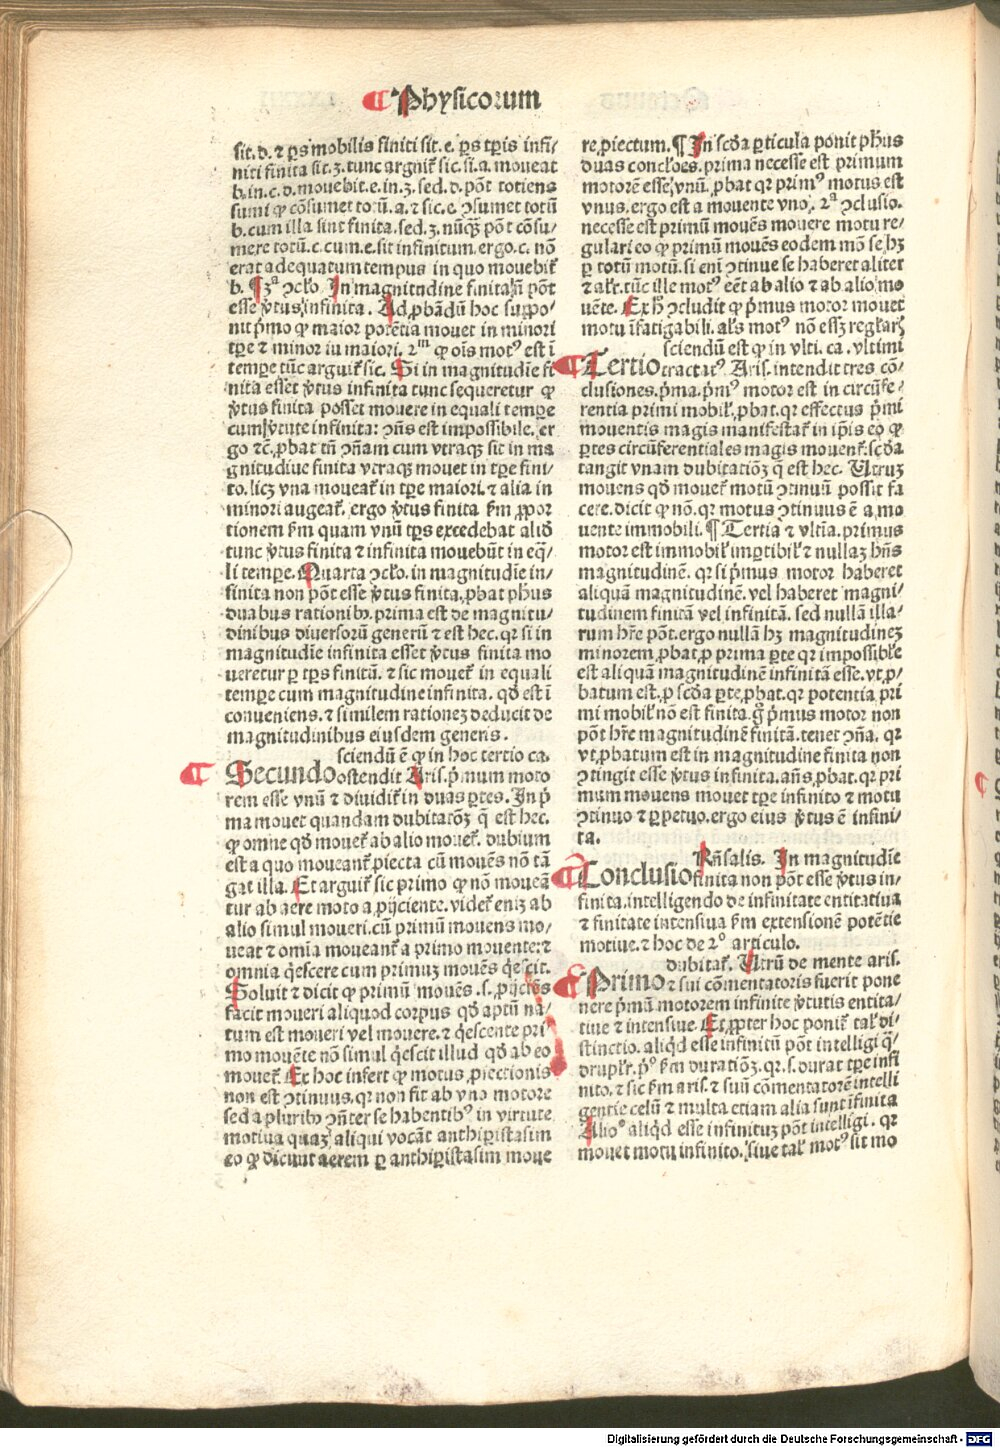 ¶ Physicorum
sit.d. ⁊ ꝑs mobilis finiti sit.e. ꝑs tꝑis infi⸗
niti finita sit.ʒ. tunc arguit᷑ sic. si.a. moueat
b.in.c.d.mouebit.e.in.ʒ. sed.d.põt totiens
sumi ꝙ cõsumet totũ.a. ⁊ sic.e. ꝯsumet totũ
b.cum illa sint finita.sed.ʒ. nũqꝫ põt cõsu⸗
mere totũ.c.cum.e.sit infinitum.ergo.c. nõ
erat adequatum tempus in quo mouebit᷑
b. ¶ʒª ꝯclo. In magnitudine finita nõ põt
esse v̓tus infinita. Ad ꝓbãdũ hoc suppo⸗
nit p̓mo ꝙ maior potẽtia mouet in minori
tꝑe ⁊ minor in maiori. 2ᵐ ꝙ oĩs motꝰ est ĩ
tempe tũc arguit᷑ sic. Si in magnitudĩe fi
nita esset v̓tus infinita tunc sequeretur ꝙ
v̓tus finita posset mouere in equali tempe
cum v̓tute infinita: ꝯñs est impossibile. er
go ⁊c̃. ꝓbat tñ ꝯñam cum vtraqꝫ sit in ma
gnitudine finita vtraqꝫ mouet in tꝑe fini⸗
to.licꝫ vna moueat᷑ in tꝑe maiori.⁊ alia in
minori augeat᷑. ergo v̓tus finita ẜm ꝓpor
tionem ẜm quam vnũ tꝑs excedebat aliđ
tunc v̓tus finita ⁊ infinita mouebũt in eq̃⸗
li tempe. Quarta ꝯclo. in magnitudĩe in⸗
finita non põt esse v̓tus finita. ꝓbat pħus
duabus rationibꝰ. prima est de magnitu⸗
dinibus diuersorũ generũ ⁊ est hec. qꝛ si in
magnitudĩe infinita esset v̓tus finita mo
ueretur ꝑ tꝑs finitũ. ⁊ sic mouet᷑ in equali
tempe cum magnitudine infinita. qđ est ĩ
conueniens. ⁊ similem rationeꝫ deducit de
magnitudinibus eiusdem generis.
sciendũ ẽ ꝙ in hoc tertio ca.
¶ Secundo ostendit Aris. p̓mum moto
rem esse vnũ ⁊ diuidit᷑ in duas ꝑtes. In p̓
ma mouet quandam dubitatõꝫ q̃ est hec.
ꝙ omne qđ mouet᷑ ab alio mouet᷑. dubium
est a quo moueant᷑ ꝓiecta cũ mouẽs nõ tã
gat illa. Et arguit᷑ sic primo ꝙ nõ mouea
tur ab aere moto a ꝓijciente. videt᷑ eniꝫ ab
alio simul moueri.cũ primũ mouens mo⸗
ueat ⁊ omnia moueant᷑ a primo mouente:⁊
omnia q̇escere cum primuꝫ mouẽs q̇escit.
Soluit ⁊ dicit ꝙ primũ mouẽs .s. ꝓijciẽs
facit moueri aliquod corpus qđ aptũ na⸗
tum est moueri vel mouere. ⁊ q̇escente pri
mo mouẽte nõ simul q̇escit illud qđ ab eo
mouet᷑. Ex hoc infert ꝙ motus ꝓiectionis
non est ꝯtinuus. qꝛ non fit ab vno motore
sed a pluribꝰ ꝯñter se habentibꝰ in virtute
motiua quaꝫ aliqui vocãt anthiꝑistasim
eo ꝙ dicunt aerem ꝑ anthiꝑistasim moue
re ꝓiectum. ¶ In scđa ꝑticula ponit pħus
duas conclões. prima necesse est primum
motorẽ esse vnũ. ꝓbat qꝛ primꝰ motus est
vnus. ergo est a mouente vno. 2ª ꝯclusio.
necesse est primũ mouẽs mouere motu re⸗
gulari eo ꝙ primũ mouẽs eodem mõ se hꝫ
ꝑ totũ motũ. si eni ꝯtinue se haberet aliter
⁊ alr̃. tũc ille motꝰ eẽt ab alio ⁊ ab alio mo
uẽte. Ex hͦ ꝯcludit ꝙ p̓mus motor mouet
motu ĩfatigabili. als motꝰ nõ esꝫ regłarꝭ
sciendũ est ꝙ in vlti. ca. vltimi
¶ Tertio tractatꝰ Aris. intendit tres cõ⸗
clusiones. p̓ma. p̓mꝰ motor est in circũfe⸗
rentia primi mobił. ꝓbat. qꝛ effectus p̓mi
mouentis magis manifestat᷑ in ip̃is eo ꝙ
ꝑtes circũferentiales magis mouent᷑. scđa
tangit vnam dubitatiõꝫ q̃ est hec. Vtruꝫ
mouens qđ mouet᷑ motũ ꝯtinuũ possit fa
cere. dicit ꝙ nõ. qꝛ motus ꝯtinuus ẽ a mo
uente immobili. ¶ Tertia ⁊ vltĩa. primus
motor est immobił impartibił ⁊ nullaꝫ hñs
magnitudinẽ. qꝛ si p̓mus motor haberet
aliquã magnitudinẽ. vel haberet magni⸗
tudinem finitã vel infinitã. sed nullã illa⸗
rum hr̃e põt. ergo nullã hꝫ magnitudineꝫ
minorem ꝓbat ꝓ prima ꝑte qꝛ impossibłe
est aliquã magnitudinẽ infinitã esse. vt ꝓ⸗
batum est. ꝓ scđa ꝑte ꝓbat. qꝛ potentia pri
mi mobił nõ est finita. g̊ p̓mus motor non
põt hr̃e magnitudinẽ finitã. tenet ꝯña. qꝛ
vt ꝓbatum est in magnitudine finita non
ꝯtingit esse v̓tus infinita. añs ꝓbat. qꝛ pri
mum mouens mouet tꝑe infinito ⁊ motu
ꝯtinuo ⁊ ꝑpetuo. ergo eius v̓tus ẽ infini⸗
ta.
Rñsalis. In magnitudĩe
¶ Conclusio finita non põt esse v̓tus in⸗
finita. intelligendo de infinitate entitatiua
⁊ finitate intensiua ẜm extensionẽ potẽtie
motiue. ⁊ hoc de 2º articulo.
dubitat᷑. Vtrũ de mente aris.
¶ Primo ⁊ sui cõmentatoris fuerit pone
nere p̓mũ motorem infinite v̓tutis entita⸗
tiue ⁊ intensiue. Et ꝓpter hoc ponit᷑ tał di⸗
stinctio. aliq̇d esse infinitũ põt intelligi q̃⸗
druplr̃. p̓º ẜm duratiõꝫ. qꝛ .s. durat tꝑe infi
nito. ⁊ sic ẜm aris. ⁊ suũ cõmentatorẽ intelli
gentie celũ ⁊ multa etiam alia sunt ĩfinita
Alioº aliq̇d esse infinituꝫ põt intelligi. qꝛ
mouet motu infinito. siue tał motꝰ sit mo